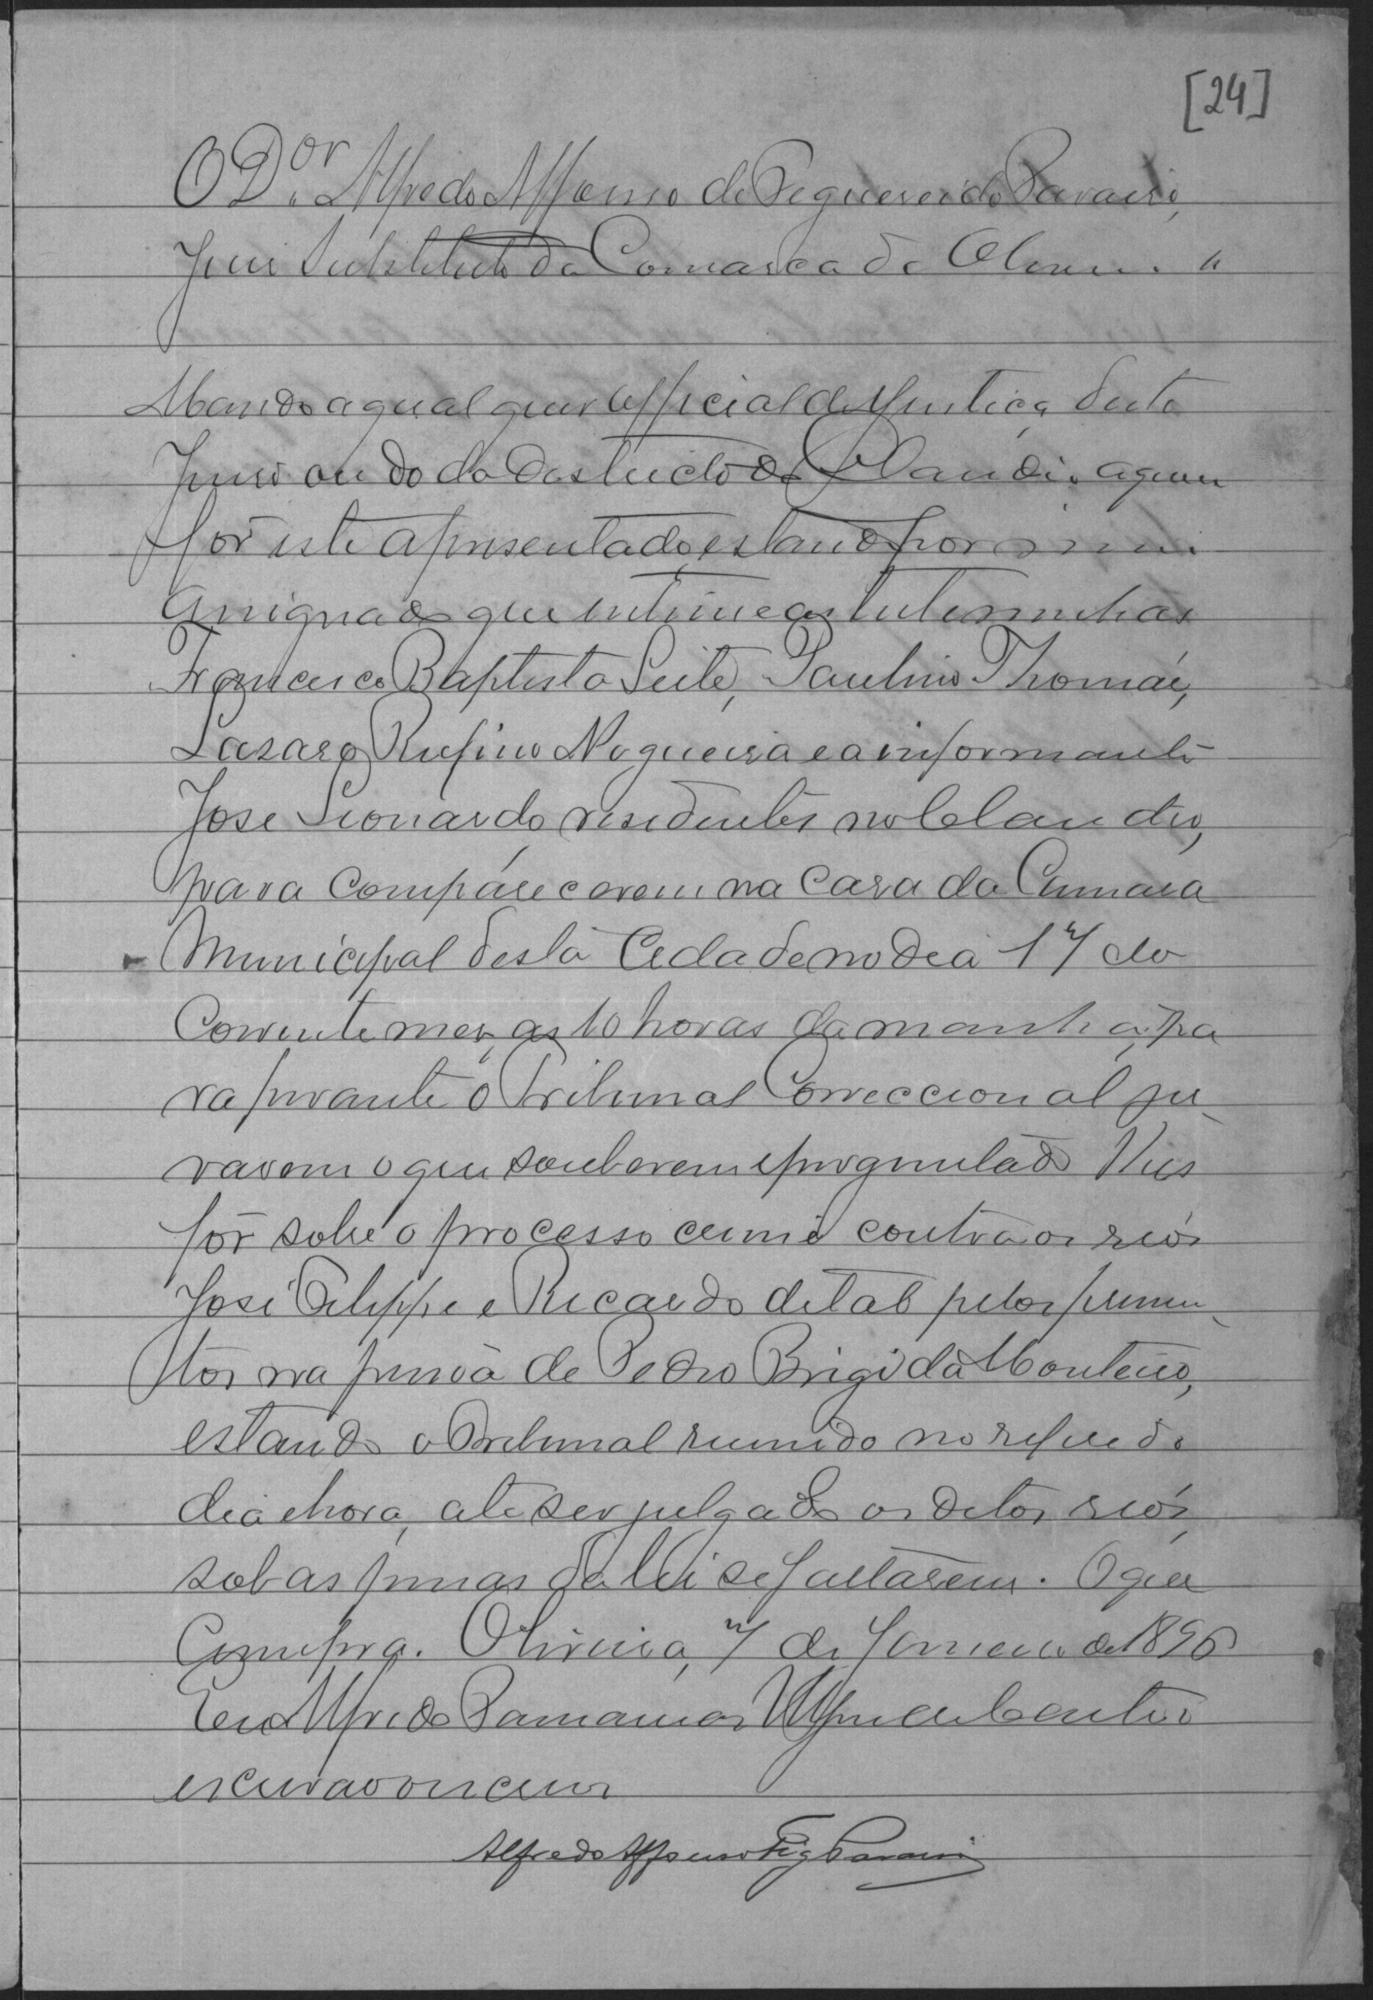 [24]
O Dor. Alfredo Affonso de Figuereido Paraiso,
Juis Substituto da Comarca de Oliveira.
Mando a qual quer official de Justiça deste
Juiso ou do do Destricto do Claudio aquem
fôr este apresentado, estando por mim
assignado que intime as testemunhas
Francisco Baptista Leite, Paulino Thomáz,
Lazaro Rufino Nogueira e a informante
José Leonardo residentes no Claudio,
para comparecerem na casa da Camara
Municipal desta Cidade no dia 17 do
Corrente mez, as 10 horas da manhã, pa
ra perante o Tribunal Correccional ju-
rarem o que souberem e preguntado lhes
fôr sobre o processo crime contra os reós
José Felippe e Ricardo de tal pelos ferimen-
tos na pessoa de Pedro Brigida Monteiro,
estando o Tribunal reunido no referido
dia e hora, ate ser julgado os ditos reós,
sob as penas da lei se faltarem. O que
Cumpra. Oliveira, 7 de Janeiro de 1896
Eu Alfredo
escrivão o escrevi
Alfredo Affonso Fig Paraiso